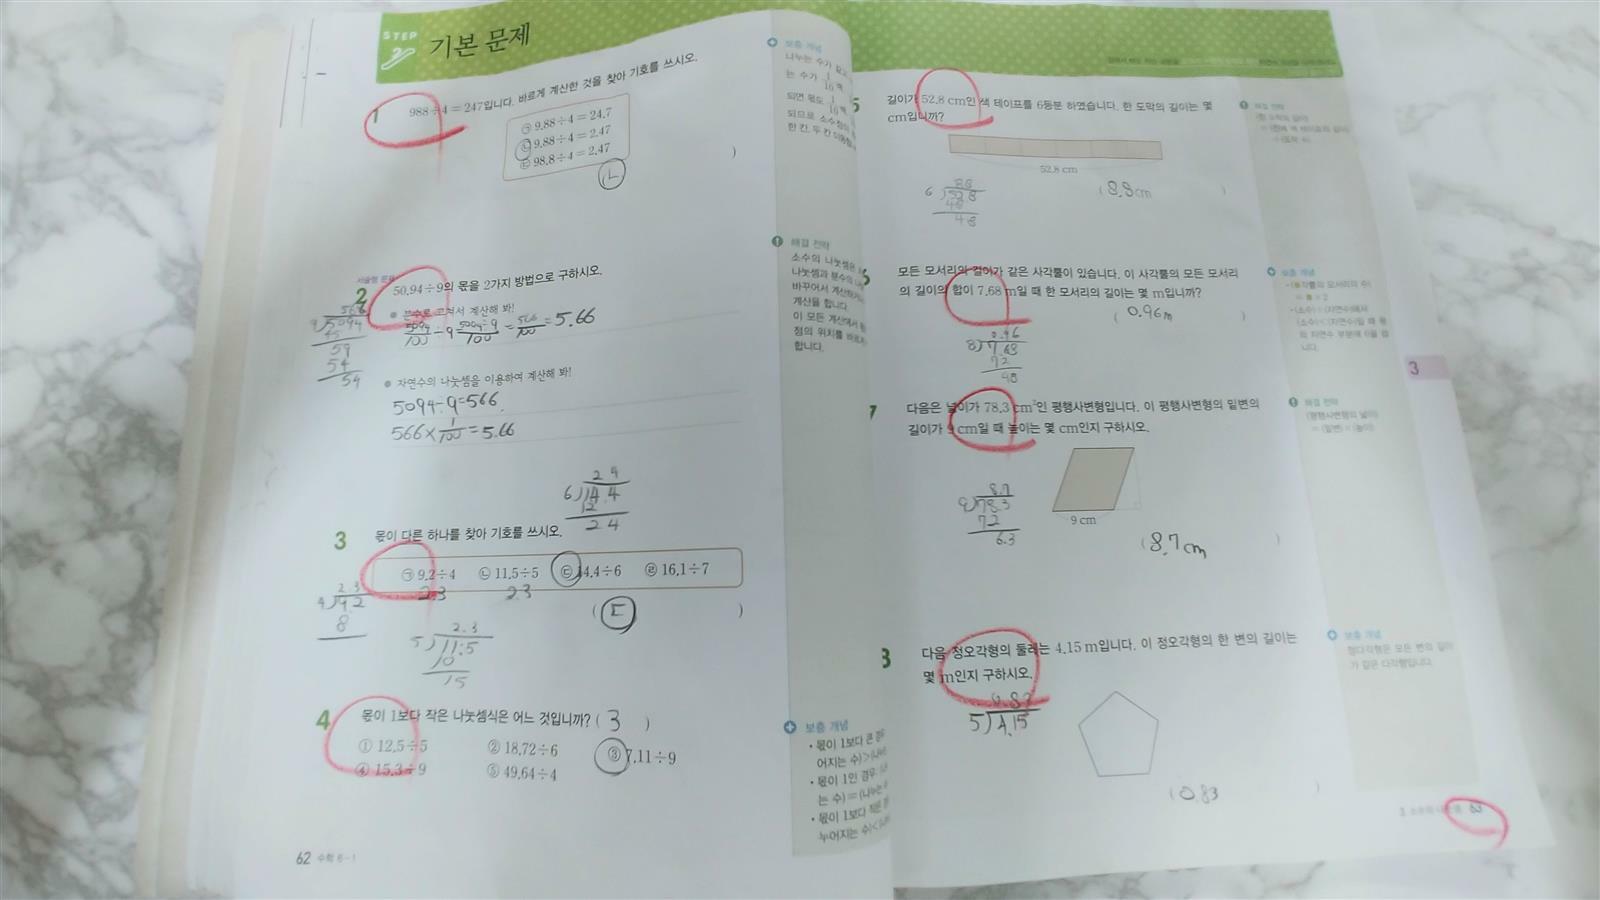 STEP
2
기본 문제
1 988÷4=247입니다. 바르게 계산한 것을 찾아 기호를 쓰시오.
㉠ 9.88÷4=24.7
㉡ 9.88÷4=2.47
㉢ 98.8÷4=2.47
ㄴ )
보충 개념
나누는 수가 같고
는 수가 1/10배
되면 몫도 1/10배
되므로 소수점이
한 칸, 두 칸 이동합
서술형 문제
2 50.94÷9의 몫을 2가지 방법으로 구하시오.
● 분수로 고쳐서 계산해 봐!
5094/100÷9=5094÷9/100=566/100=5.66
566
9)5094
45
59
54
54
● 자연수의 나눗셈을 이용하여 계산해 봐!
5094÷9=566.
566×1/100=5.66
해결 전략
소수의 나눗셈은
나눗셈과 분수의 나
바꾸어서 계산하거나
계산을 합니다.
이 모든 계산에서
점의 위치를 바르게
합니다.
2 4
6)14.4
12
2 4
3 몫이 다른 하나를 찾아 기호를 쓰시오.
㉠ 9.2÷4 ㉡ 11.5÷5 ㉢ 14.4÷6 ㉣ 16.1÷7
2.3 2.3
( ㄷ )
2.3
4)92
8
2.3
5)11.5
10
15
4 몫이 1보다 작은 나눗셈식은 어느 것입니까? ( 3 )
① 12.5÷5 ② 18.72÷6 ③ 7.11÷9
④ 15.3÷9 ⑤ 49.64÷4
보충 개념
• 몫이 1보다 큰 경우
어지는 수)>(나누
• 몫이 1인 경우: (나
는 수)=(나누는
• 몫이 1보다 작은
누어지는 수)<(나
62 수학 6-1
5 길이가 52.8 cm인 색 테이프를 6등분 하였습니다. 한 도막의 길이는 몇
cm입니까?
52.8 cm
88
6)528
48
48
( 8.8cm )
해결 전략
6 모든 모서리의 길이가 같은 사각뿔이 있습니다. 이 사각뿔의 모든 모서리
의 길이의 합이 7.68 m일 때 한 모서리의 길이는 몇 m입니까?
( 0.96m )
0.96
8)7.68
72
48
보충 개념
7 다음은 넓이가 78.3 cm²인 평행사변형입니다. 이 평행사변형의 밑변의
길이가 9 cm일 때 높이는 몇 cm인지 구하시오.
9 cm
8.7
9)78.3
72
6.3
( 8.7cm )
해결 전략
(평행사변형의 넓이)
=(밑변)×(높이)
3
8 다음 정오각형의 둘레는 4.15 m입니다. 이 정오각형의 한 변의 길이는
몇 m인지 구하시오.
0.83
5)4.15
( 0.83 )
보충 개념
정다각형은 모든 변의 길이
가 같은 다각형입니다.
3. 소수의 나눗셈 63